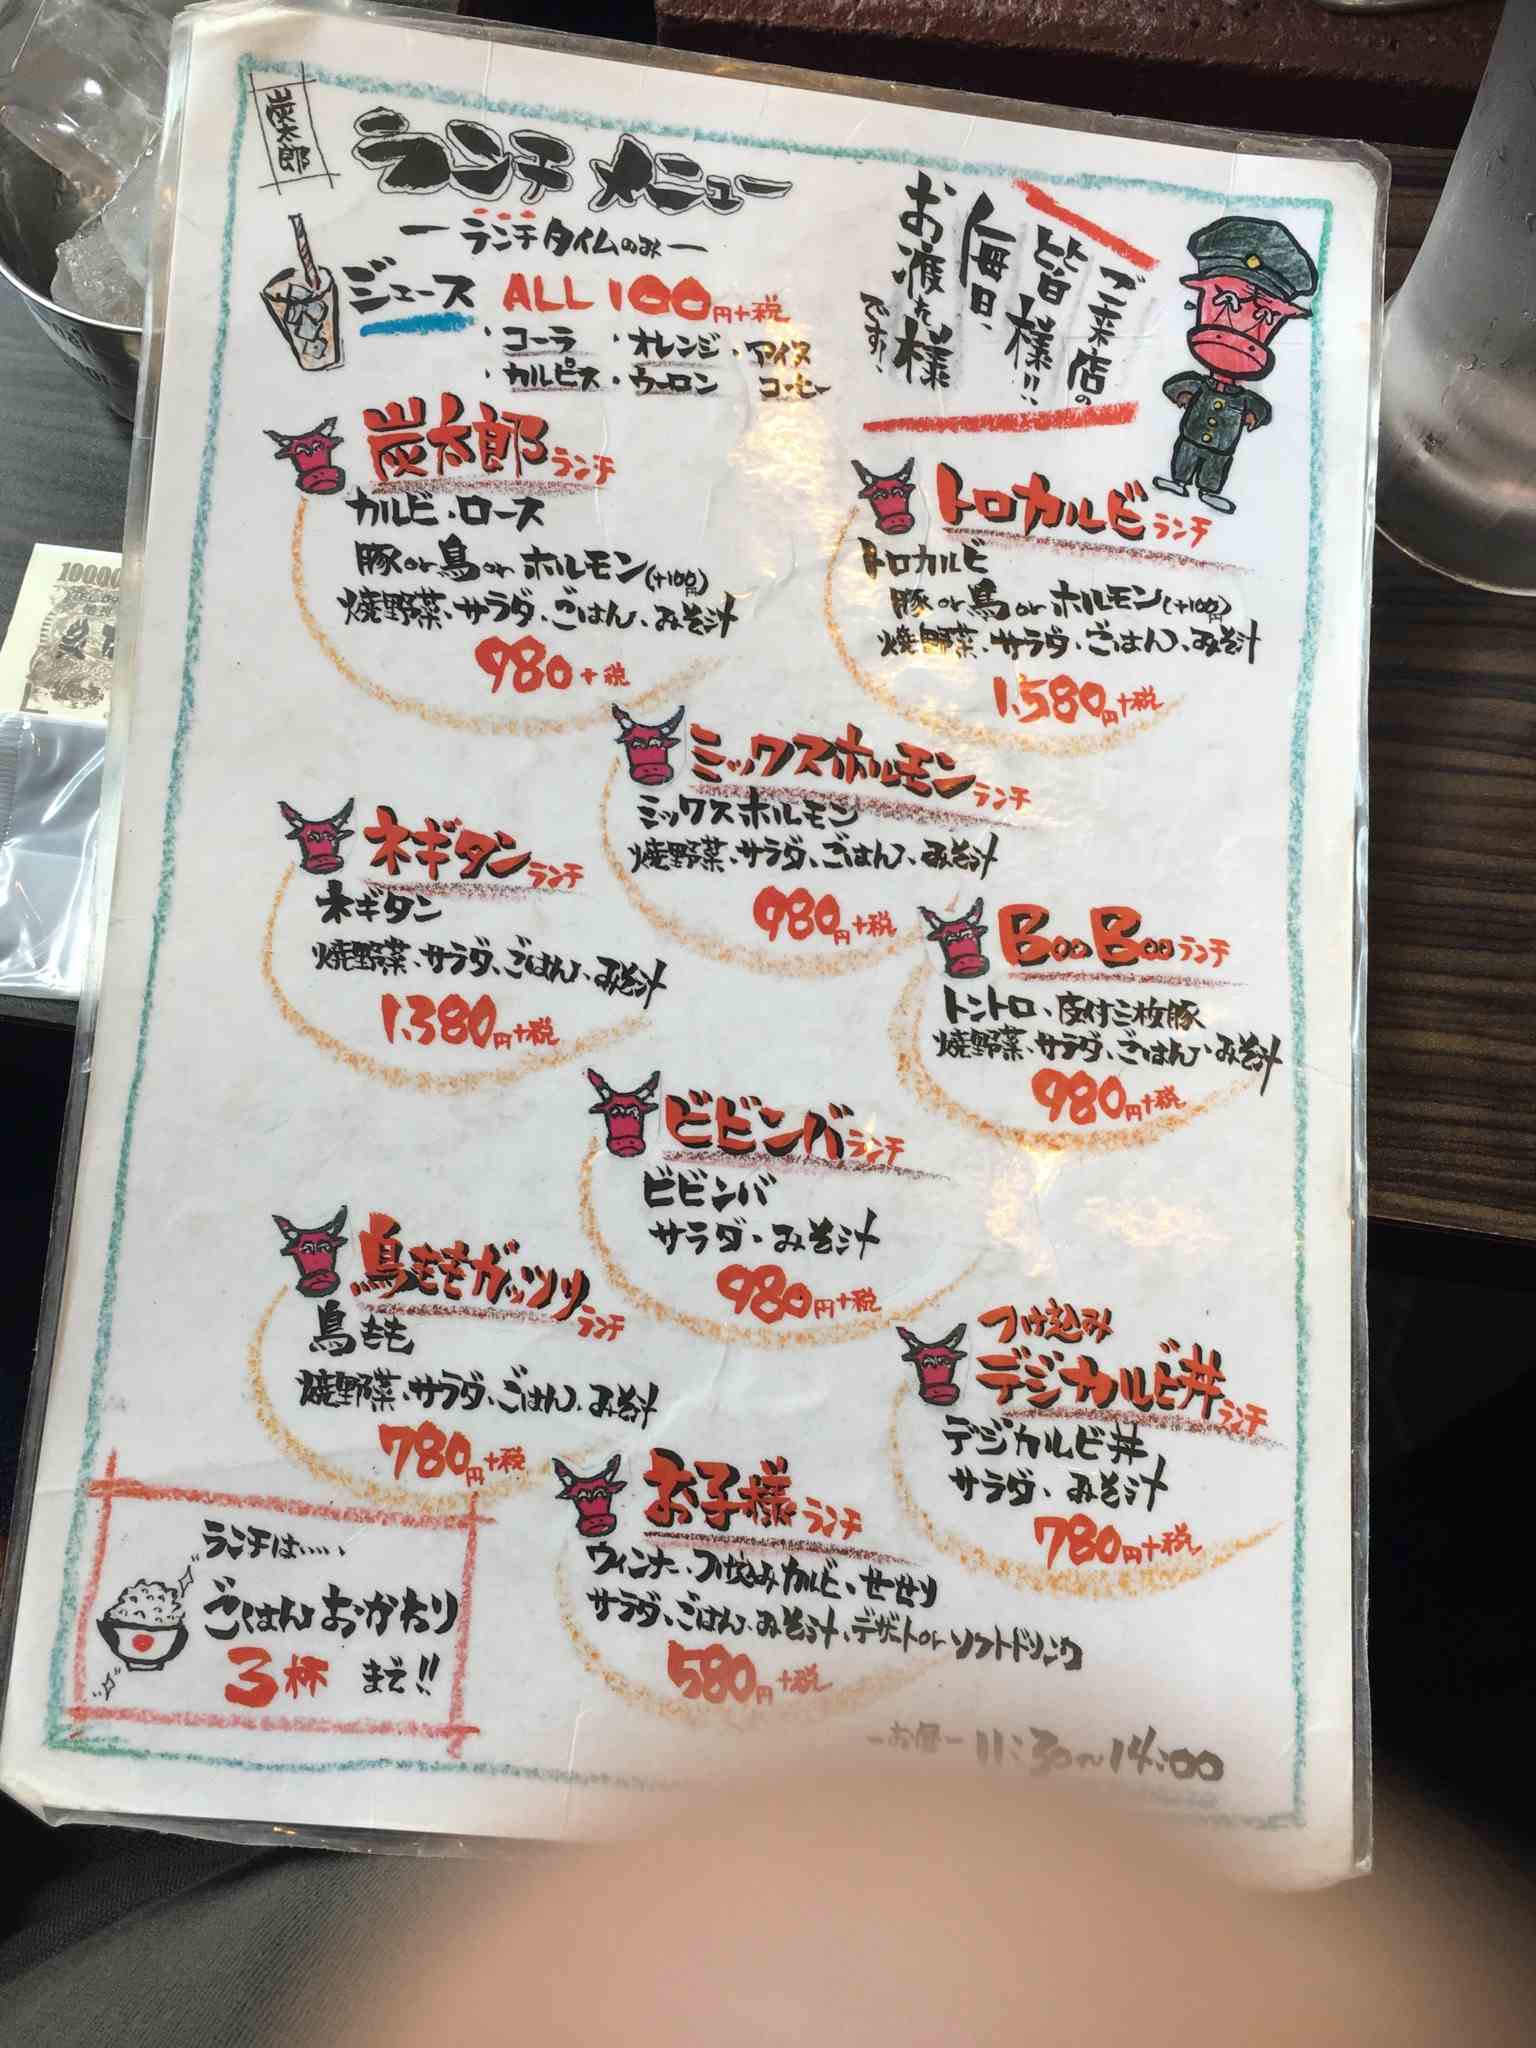 炭火郎
ランチメニュー
ーランチタイムのみー
ジュース ALL 100円+税
・コーラ ・オレンジ ・アイスコーヒー
・カルピス ・ウーロン
ご来店の
皆様!!
毎日、
お疲れ様
です!
炭太郎ランチ
カルビ・ロース
豚or鳥orホルモン(+100円)
焼野菜、サラダ、ごはん、みそ汁
980+税
トロカルビランチ
トロカルビ
豚or鳥orホルモン(+100円)
焼野菜、サラダ、ごはん、みそ汁
1,580円+税
ミックスホルモンランチ
ミックスホルモン
焼野菜、サラダ、ごはん、みそ汁
980円+税
ネギタンランチ
ネギタン
焼野菜、サラダ、ごはん、みそ汁
1,380円+税
Boo Booランチ
トントロ、皮付三枚豚
焼野菜、サラダ、ごはん、みそ汁
980円+税
ビビンバランチ
ビビンバ
サラダ、みそ汁
980円+税
鳥ももガッツリランチ
鳥もも
焼野菜、サラダ、ごはん、みそ汁
780円+税
つけ込み
デジカルビ丼ランチ
デジカルビ丼
サラダ、みそ汁
780円+税
お子様ランチ
ウィンナー、つけ込みカルビ、せせり
サラダ、ごはん、みそ汁、デザートorソフトドリンク
580円+税
ランチは.....
ごはんおかわり
3杯まで!!
ーお昼ー 11:30〜14:00
10000